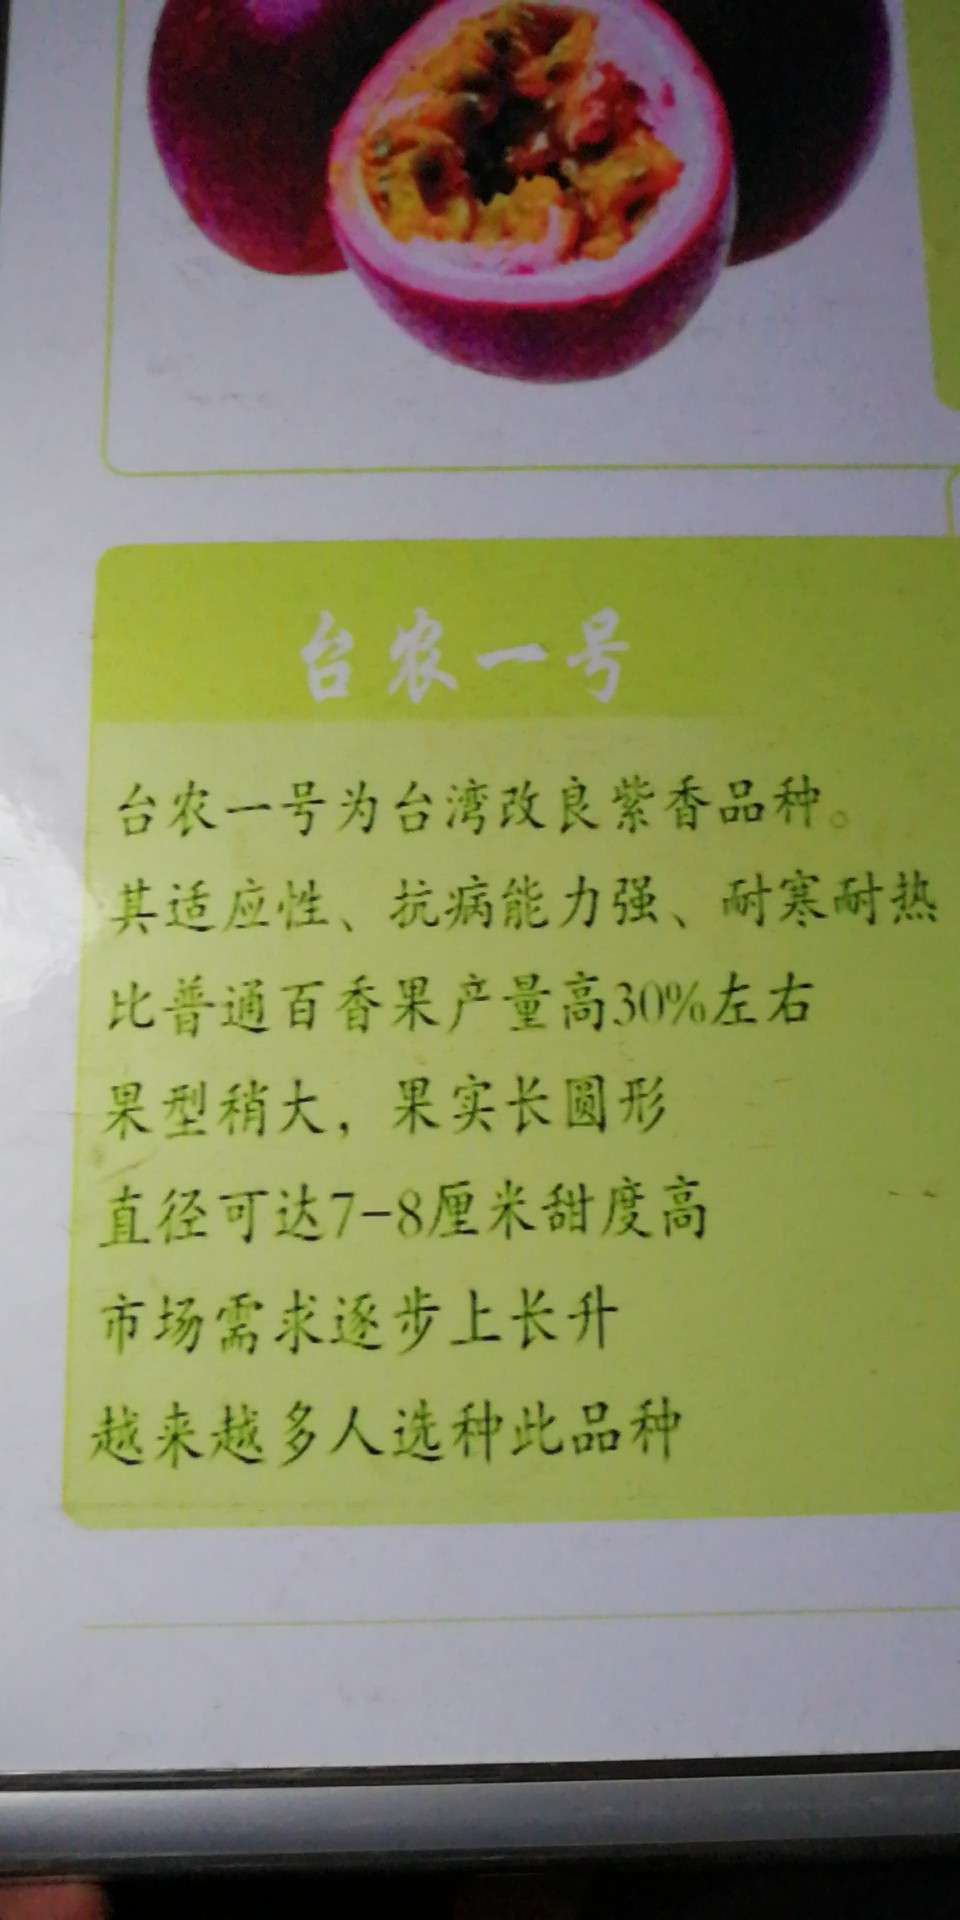 台农一号
台农一号为台湾改良紫香品种。
其适应性、抗病能力强、耐寒耐热
比普通百香果产量高30%左右
果型稍大，果实长圆形
直径可达7-8厘米甜度高
市场需求逐步上长升
越来越多人选种此品种